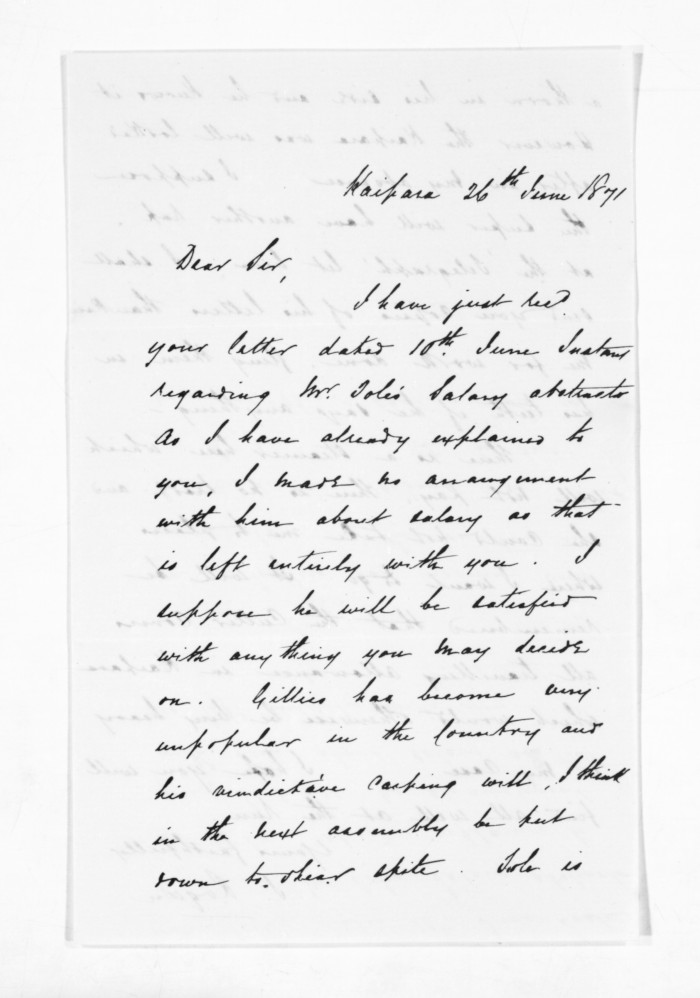 Kaipara 26th June 1871
Dear Sir,
I have just recd.
your letter dated 10th. June Instant
regarding Mr. Tole's Salary abstracts
As I have already explained to
you, I made no arrangement
with him about salary as that
is left entirely with you. I
suppose he will be satisfied
with anything you may decide
on. Gillies has become very
unpopular in the Country and
his vindictive carping will, I think
in the next assembly be put
down to shear spite. Tole is